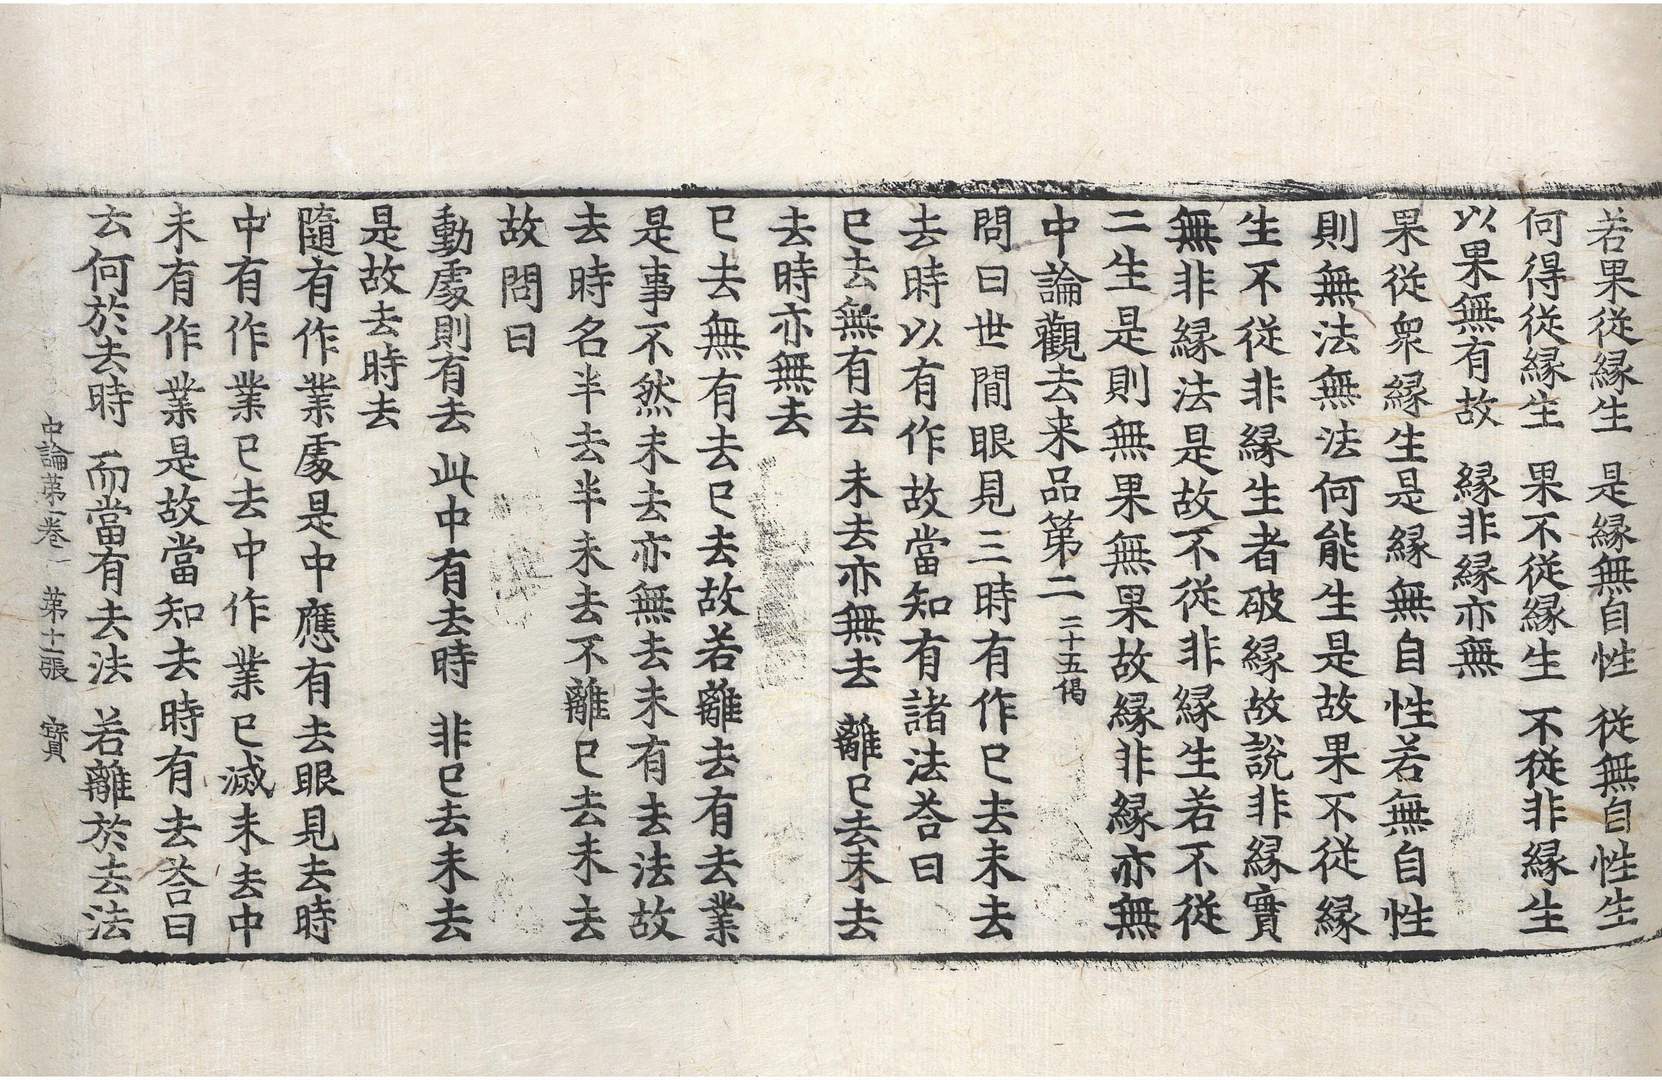 若果從緣生　是緣無自性　從無自性生
何得從緣生　果不從緣生　不從非緣生
以果無有故　緣非緣亦無
果從衆緣生是緣無自性若無自性
則無法無法何能生是故果不從緣
生不從非緣生者破緣故說非緣實
無非緣法是故不從非緣生若不從
二生是則無果無果故緣非緣亦無
中論觀去来品第二 二十五偈
問曰世間眼見三時有作已去未去
去時以有作故當知有諸法荅曰
已去無有去　未去亦無去　離已去未去
去時亦無去
已去無有去已去故若離去有去業
是事不然未去亦無去未有去法故
去時名半去半未去不離已去未去
故問曰
動處則有去　此中有去時　非已去未去
是故去時去
隨有作業處是中應有去眼見去時
中有作業已去中作業已滅未去中
未有作業是故當知去時有去荅曰
云何於去時　而當有去法　若離於去法
中論第一卷　第十二張　寶